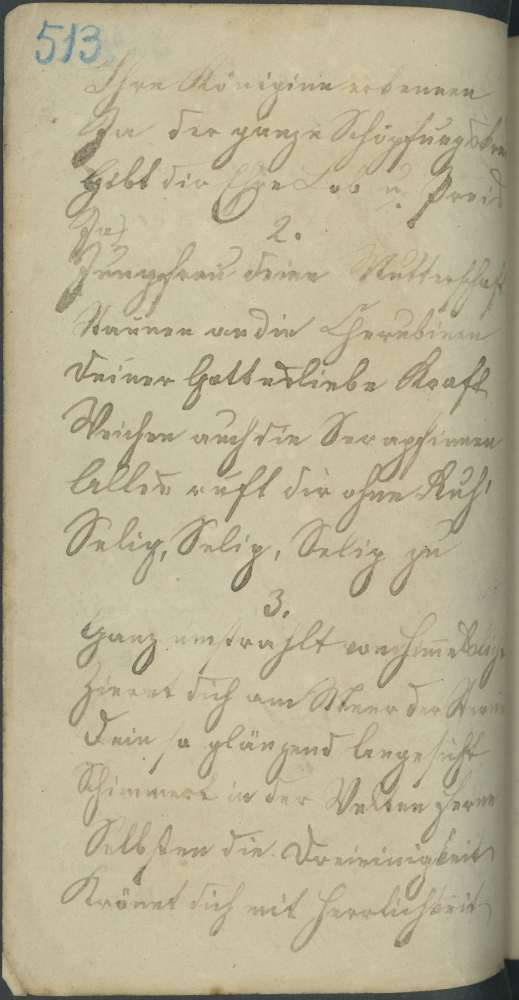 513
Ihre Königinn erkennen
Ja der ganze Schöpfungskre
Gebt dir Ehre Lob u. Preis
2.
Jungfrau deine Mutterschaft
Staunen an die Cherubinen
Deiner Gottesliebe Kraft
Weichen auch die Seraphinen
Alles ruft dir ohne Ruh'
Selig, Selig, Selig zu
3.
Ganz umstrahlt von
Zieret dich am Meer der Stern
Dein so glänzend Angesicht
Schimmert in der Welten Ferne
Selbsten die Dreieinigkeit
Krönet dich mit Herrlichkeit